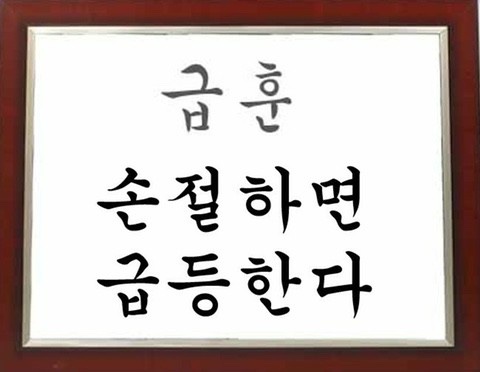 급훈
손절하면
급등한다